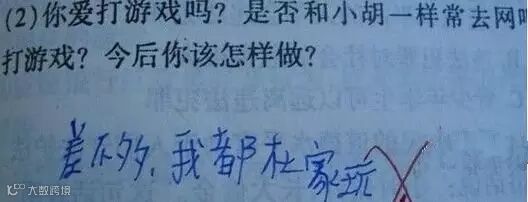 (2)你爱打游戏吗？是否和小胡一样常去网吧
打游戏？今后你该怎样做？
差不多，我都在家玩
大数跨境